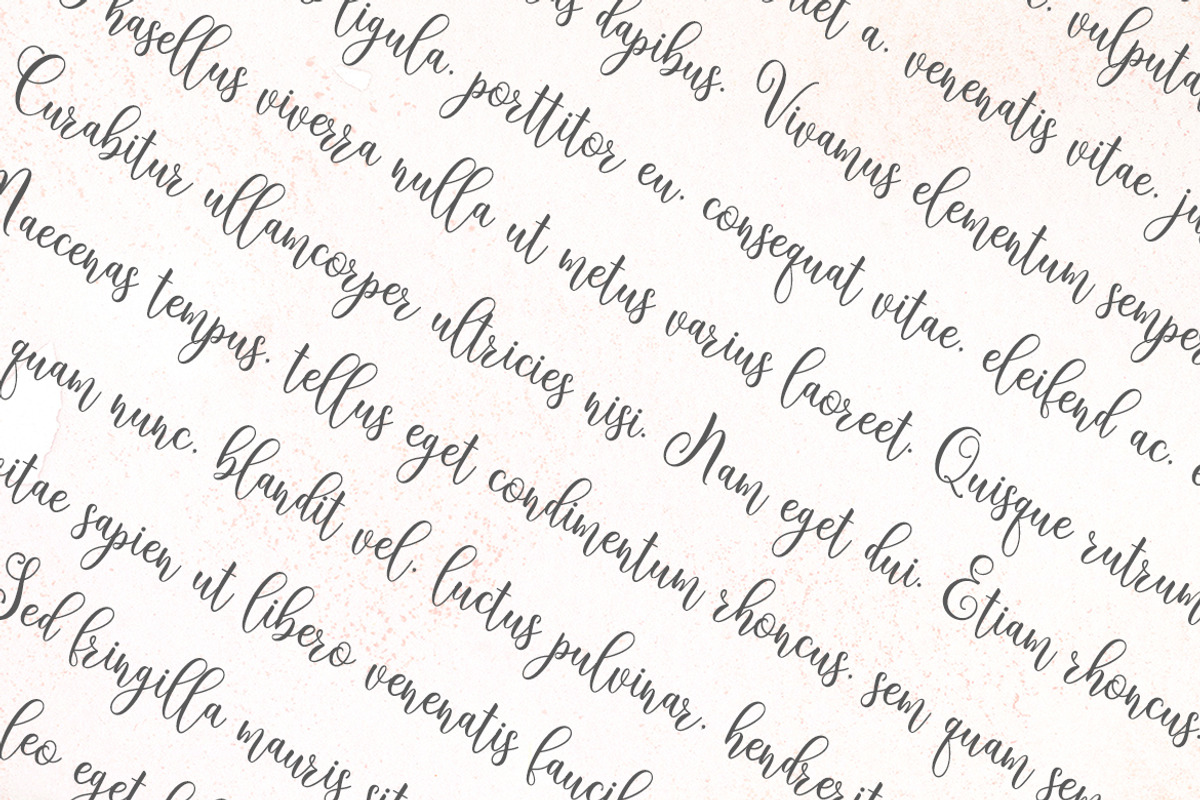 vulputa
a. venenatis vitae. ju
dapibus. Vivamus elementum semper
ligula. porttitor eu. consequat vitae. eleifend ac.
hasellus viverra nulla ut metus varius laoreet. Quisque rutrum
Curabitur ullamcorper ultricies nisi. Nam eget dui. Etiam rhoncus.
Maecenas tempus. tellus eget condimentum rhoncus. sem quam sem
quam nunc. blandit vel. luctus pulvinar. hendrerit
vitae sapien ut libero venenatis faucib
Sed fringilla mauris sit
leo eget